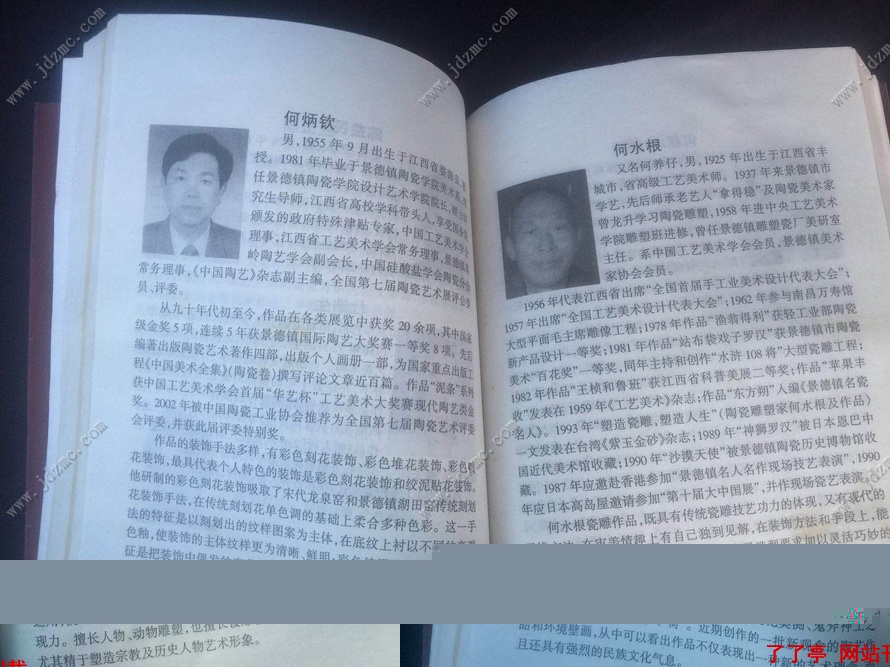 何炳钦
男，1955年9月出生于江西省
授。1981年毕业于景德镇陶瓷学院美术系，
任景德镇陶瓷学院设计艺术学院院长，硕士研
究生导师，江西省高校学科带头人，享受国务院
颁发的政府特殊津贴专家，中国工艺美术学会
理事，江西省工艺美术学会常务理事，景德镇高
岭陶艺学会副会长，中国硅酸盐学会陶瓷分会
常务理事，《中国陶艺》杂志副主编，全国第七届陶瓷艺术展评会委
员、评委。
从九十年代初至今，作品在各类展览中获奖20余项，其中国家
级金奖5项，连续5年获景德镇国际陶艺大奖赛一等奖8项。先后
编著出版陶瓷艺术著作四部，出版个人画册一部，为国家重点出版工
程《中国美术全集》(陶瓷卷)撰写评论文章近百篇。作品“泥条”系列
获中国工艺美术学会首届“华艺杯”工艺美术大奖赛现代陶艺类金
奖。2002年被中国陶瓷工业协会推荐为全国第七届陶瓷艺术评委
会评委，并获此届评委特别奖。
作品的装饰手法多样，有彩色刻花装饰、彩色堆花装饰、彩色
花装饰，最具代表个人特色的装饰是彩色刻花装饰和绞泥贴花装饰。
他研制的彩色刻花装饰吸取了宋代龙泉窑和景德镇湖田窑传统刻划
花装饰手法，在传统刻划花单色调的基础上柔合多种色彩。这一手
法的特征是以刻划出的纹样图案为主体，在底纹上衬以不同的
色釉，使装饰的主体纹样更为清晰、鲜明，
现力。擅长人物、动物雕塑，也擅长
尤其精于塑造宗教及历史人物艺术形象。
何水根
又名何养仔，男，1925年出生于江西省丰
城市，省高级工艺美术师。1937年来景德镇市
学艺，先后师承老艺人“拿得稳”及陶瓷美术家
曾龙升学习陶瓷雕塑，1958年进中央工艺美术
学院雕塑班进修，曾任景德镇雕塑瓷厂美研室
主任。系中国工艺美术学会会员，景德镇美术
家协会会员。
1956年代表江西省出席“全国首届手工业美术设计代表大会”；
1957年出席“全国工艺美术设计代表大会”；1962年参与南昌万寿馆
大型平面毛主席雕像工程；1978年作品“渔翁得利”获轻工业部陶瓷
新产品设计一等奖；1981年作品“站布袋戏子罗汉”获景德镇市陶瓷
美术“百花奖”一等奖，同年主持和创作“水浒108将”大型瓷雕工程；
1982年作品“王桢和鲁班”获江西省科普美展二等奖；作品“苹果丰
收”发表在1959年《工艺美术》杂志；作品“东方朔”入编《景德镇名瓷
名人》。1993年“塑造瓷雕，塑造人生”(陶瓷雕塑家何水根及作品)
一文发表在台湾《紫玉金砂》杂志；1989年“神狮罗汉”被日本恩巴中
国近代美术馆收藏；1990年“沙漠天使”被景德镇陶瓷历史博物馆收
藏。1987年应邀赴香港参加“景德镇名人名作现场技艺表演”，1990
年应日本高岛屋邀请参加“第十届大中国展”，并作现场瓷艺表演。
何水根瓷雕作品，既具有传统瓷雕技艺功力的体现，又有现代的
在审美情趣上有自己独到见解，在装饰方法和手段上，能
要求加以灵活巧妙的
品和环境壁画，从中可以看出作品不仅表现出
且还具有强烈的民族文化气息。
近期创作的一批新观念的
www.jdzmc.com
了了亭 网站